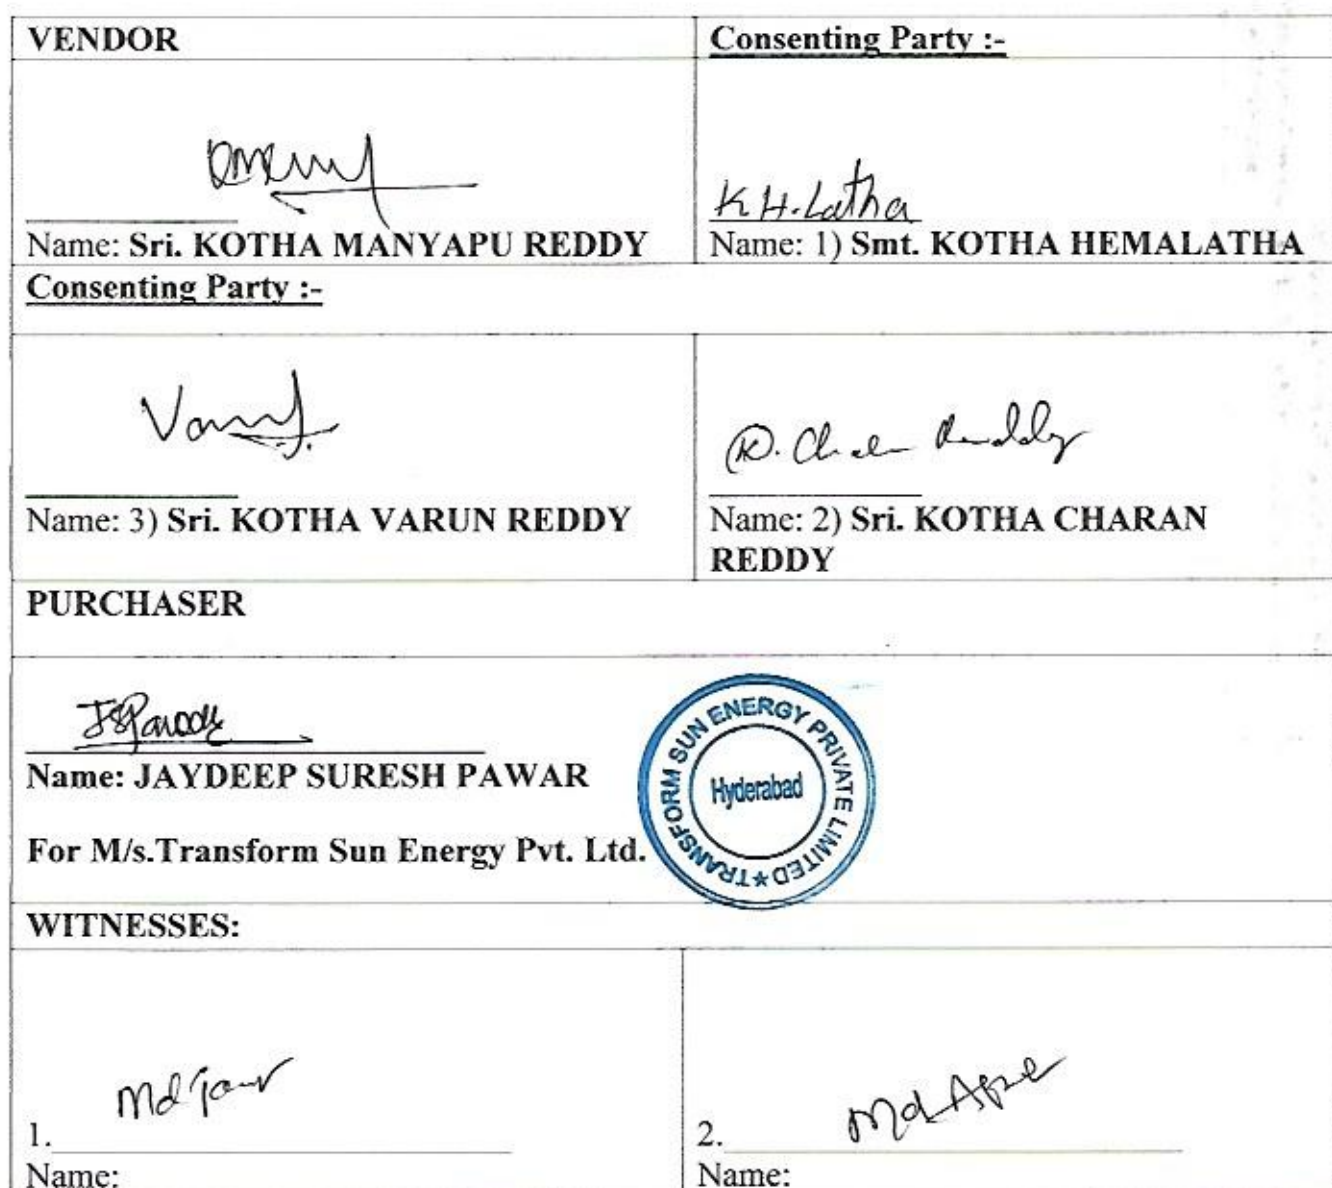 VENDOR
Consenting Party :-
K H. Latha
Name: Sri. KOTHA MANYAPU REDDY
Name: 1) Smt. KOTHA HEMALATHA
Consenting Party :-
Name: 3) Sri. KOTHA VARUN REDDY
Name: 2) Sri. KOTHA CHARAN
REDDY
PURCHASER
Name: JAYDEEP SURESH PAWAR
For M/s.Transform Sun Energy Pvt. Ltd.
TRANSFORM SUN ENERGY PRIVATE LIMITED ★
Hyderabad
WITNESSES:
1.
2.
Name:
Name: